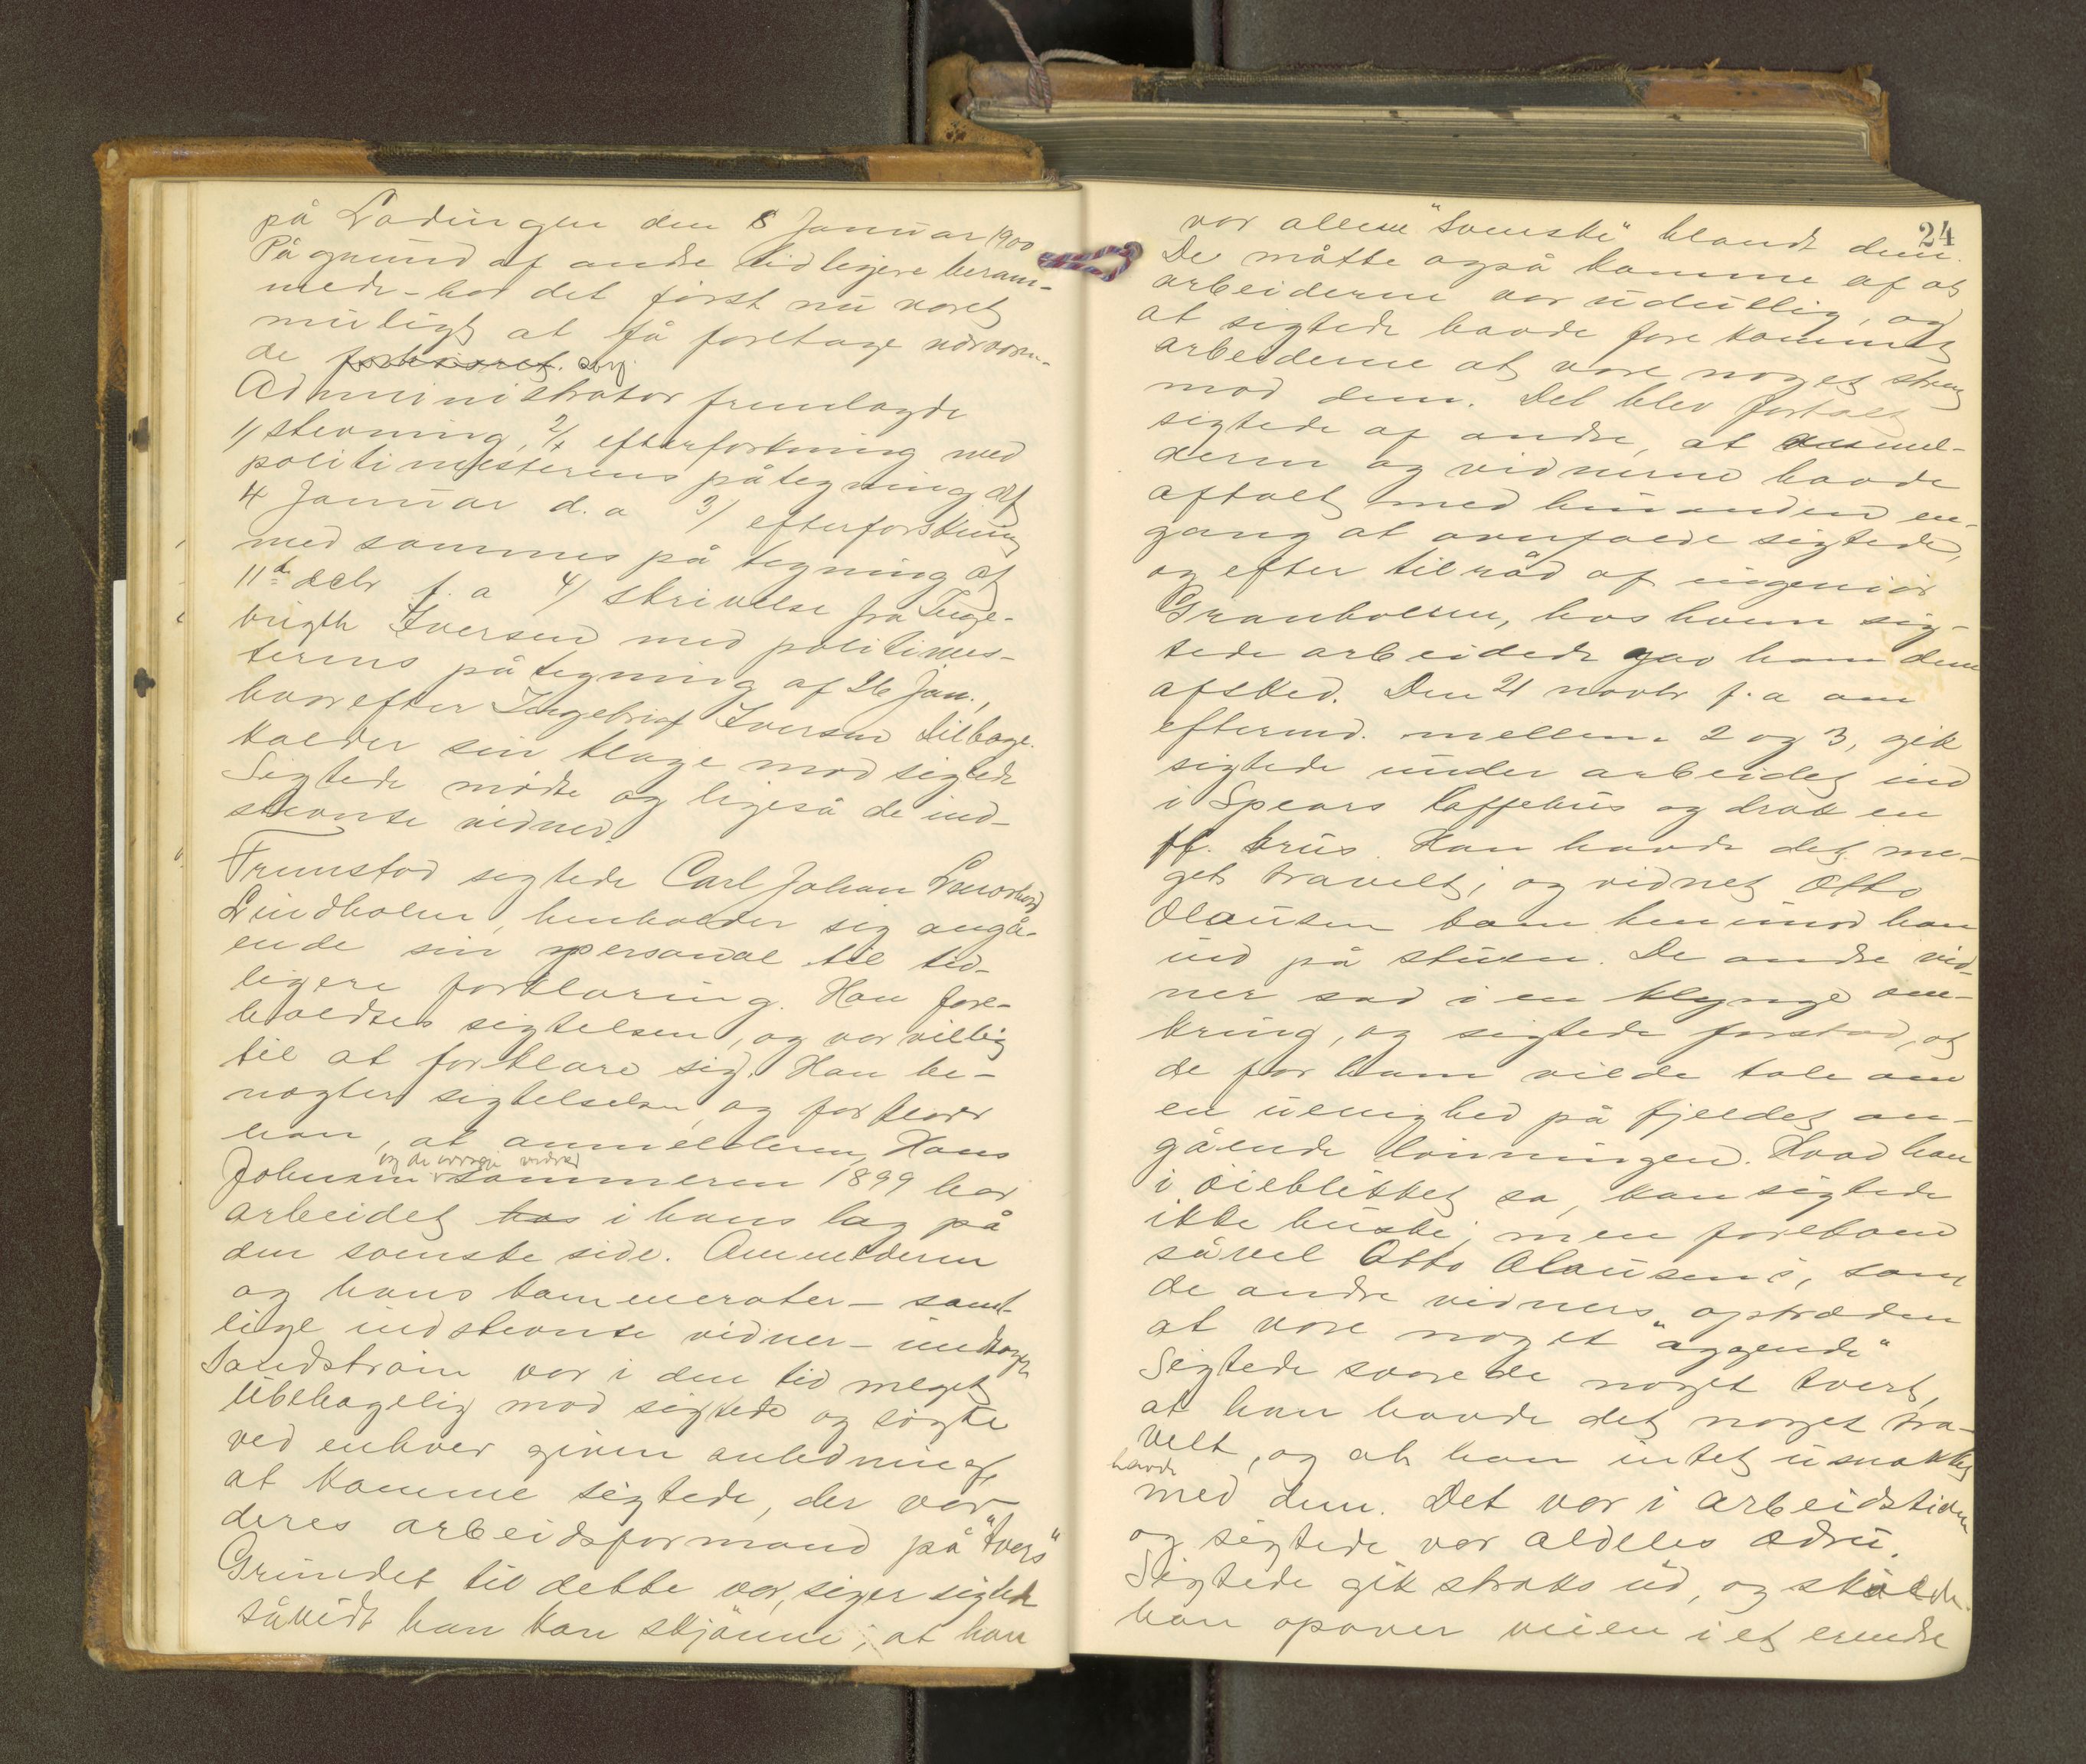 på Lødingen den 8 Januar 1900
På grund af andre tidligere beram-
mede - har det først nu været
muligt at få foretage nærværen-
de forhöret. sag.
Administrator fremlagde
1/ stevning, 2/ efterforskning med
politimesterens påtegning af
4 Januar d. a 3/ efterforskning
med sammes påtegning af
11te decbr f. a 4/ skrivelse fra Inge-
brigth Iversen med politimes-
terens påtegning af 26 Jan.,
hvorefter Ingebrigt Iversen tilbage-
kalder sin klage mod sigtede
Sigtede mødte og ligeså de ind-
stevnte vidner.
Fremstod sigtede Carl Johan
Lindholm, henholder sig angå-
ende sin personal til tid-
ligere forklaring. Han fore-
holdtes sigtelsen, og var villig
til at forklare sig. Han be-
nægter sigtelsen, og forklarer
han, at anmelderen, Hans
Johnsen og de øvrige vidner sommeren 1899 har
arbeidet hos i hans lag på
den svenske side. Anmelderen
og hans kammerater - samt-
lige indstevnte vidner - undtagen
Sandström var i den tid meget
ubehagelig mod sigtede og søgte
ved enhver given anledning
at komme sigtede, der var
deres arbeidsformand på "tvers"
Grundet til dette var, siger sigtede
såvidt han kan skjönne, at han
24
var allene "svenske" blandt dem.
De måtte også komme af at
arbeiderne var udullig, og
at sigtede havde forekommet
arbeiderne at være noget streng
mod dem. Det blev fortalt
sigtede af andre, at anmel-
deren og vidnerne havde
aftalt med hinanden en-
gang at overfalde sigtede,
og efter tilråd af ingeniør
Granholm, hos hvem sig-
tede arbeidede gav ham dem
afsked. Den 21 novbr f. a om
eftermd. mellem 2 og 3, gik
sigtede under arbeidet ind
i Spears kaffehus og drak en
krus. Han havde det me-
get travelt, og vidnet Otto
Olausen kom henimod ham
ind på stuen. De andre vid-
ner sad i en klynge om-
kring, og sigtede forstod, at
de for ham vilde tale om
en uenighed på fjeldet an-
gående lønningen. Hvad han
i øieblikket sa, kan sigtede
ikke huske, men forekom
såvel Otto Olausens, som
de andre vidners optræden
at være noget "aggende"
Sigtede svarede noget tvert,
at han havde det noget tra-
velt, og at han intet usnakket
havde
med dem. Det var i arbeidstiden
og sigtede var aldeles ædru.
Sigtede gik straks ud, og skulde
han opover veien i et erende